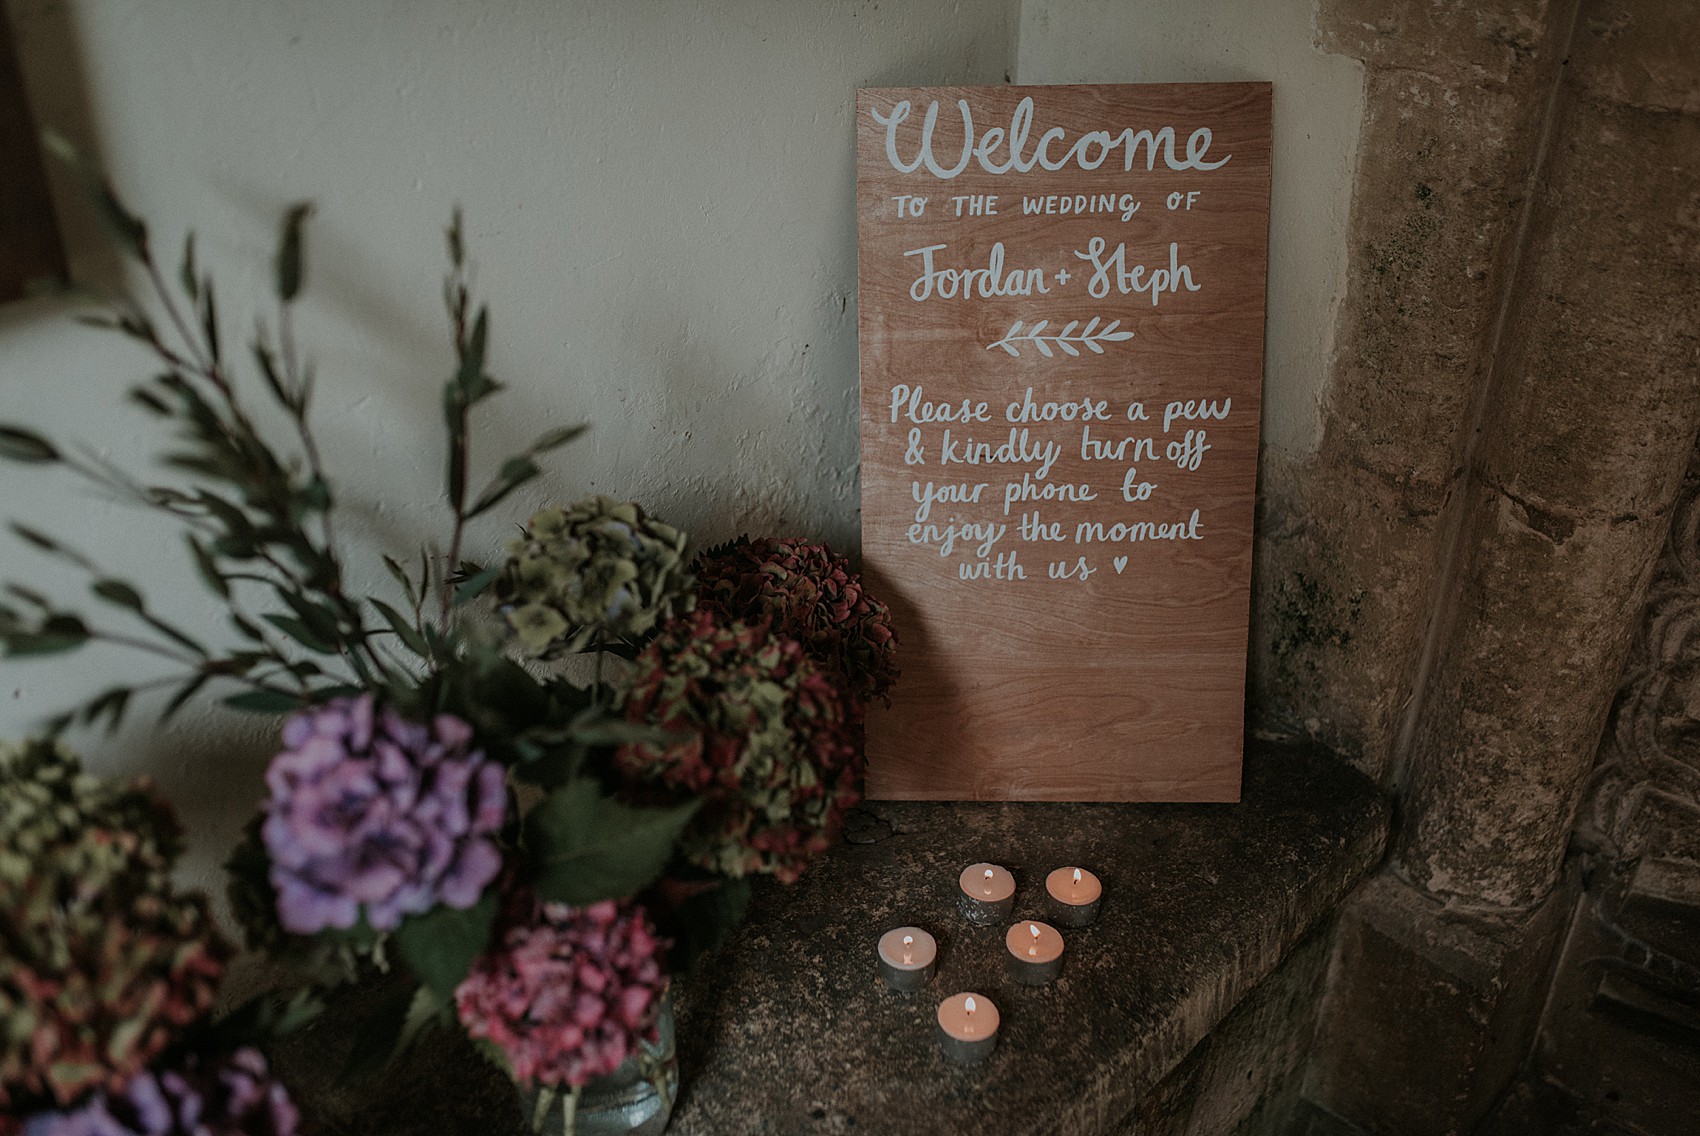 Welcome
TO THE WEDDING OF
Jordan + Steph
Please choose a pew
& kindly turn off
your phone to
enjoy the moment
with us ♥